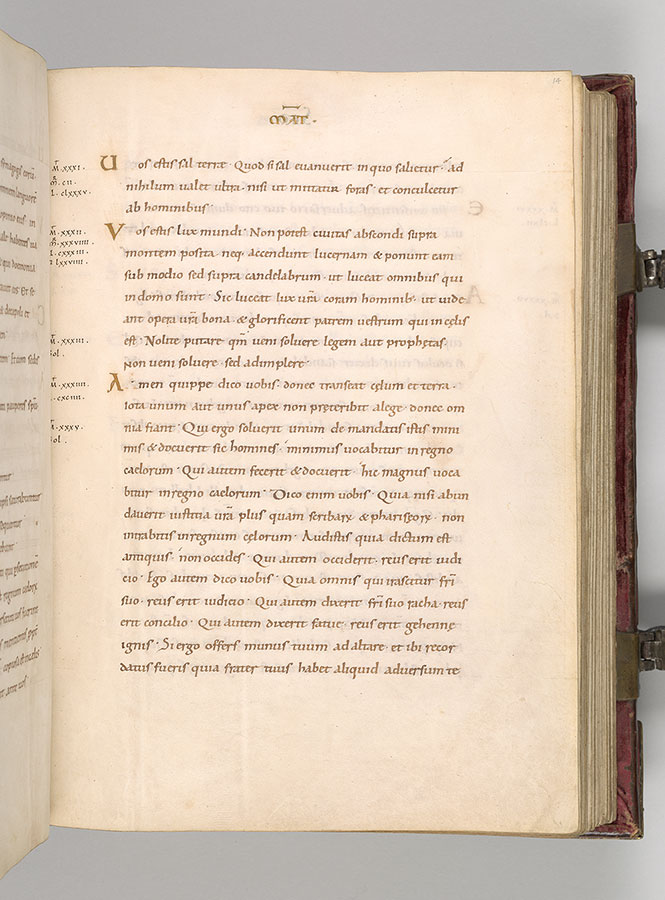 14
MAT·
M̄.xxxi.
M̄.cii.
L.clxxxv.
Uos estis sal terræ · Quod si sal euanuerit in quo salietur · ad
nihilum ualet ultra · nisi ut mittatur foras · et conculcetur
ab hominibus ·
M̄.xxxii.
M̄.xxxviiii.
L.cxxxiii.
L.lxxviiii.
Vos estis lux mundi · Non potest ciuitas abscondi supra
montem posita · neq; accendunt lucernam & ponunt eam
sub modio sed supra candelabrum · ut luceat omnibus qui
in domo sunt · Sic luceat lux ur̄a coram hominib; · ut uide
ant opera ur̄a bona · & glorificent patrem uestrum qui in cęlis
M̄.xxxiii.
sol.
est · Nolite putare qm̄ ueni soluere legem aut prophetas ·
Non ueni soluere · sed adimplere ·
M̄.xxxiiii.
L.cxciiii.
Amen quippe dico uobis · donec transeat cęlum et terra ·
iota unum aut unus apex non preteribit a lege · donec om
M̄.xxxv.
sol.
nia fiant · Qui ergo soluerit unum de mandatis istis mini
mis & docuerit sic homines · minimus uocabitur in regno
caelorum · Qui autem fecerit & docuerit · hic magnus uoca
bitur in regno caelorum · Dico enim uobis · Quia nisi abun
dauerit iustitia ur̄a plus quam scribarꝝ & phariseorꝝ · non
intrabitis in regnum cęlorum · Audistis quia dictum est
antiquis · non occides · Qui autem occiderit · reus erit iudi
cio · Ego autem dico uobis · Quia omnis qui irascitur fr̄i
suo · reus erit iudicio · Qui autem dixerit fr̄i suo racha · reus
erit concilio · Qui autem dixerit fatue · reus erit gehennę
ignis · Si ergo offers munus tuum ad altare · et ibi recor
datus fueris quia frater tuus habet aliquid aduersum te